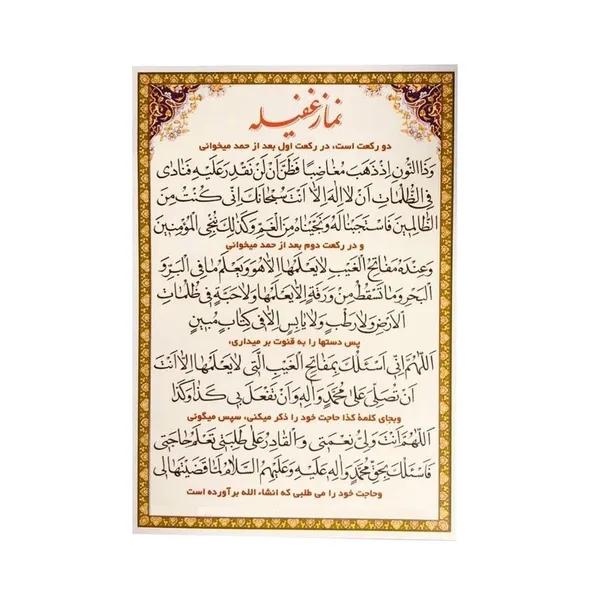 نماز غفیله
دو رکعت است، در رکعت اول بعد از حمد میخوانی
وَذَا النُّونِ اِذْ ذَهَبَ مُغاضِبًا فَظَنَّ اَنْ لَنْ نَقْدِرَ عَلَيْهِ فَنادٰى
فِى الظُّلُمَاتِ اَنْ لا اِلٰهَ اِلّا اَنْتَ سُبْحانَكَ اِنّى كُنْتُ مِنَ
الظّالِمينَ فَاسْتَجَبْنا لَهُ وَنَجَّيْناهُ مِنَ الْغَمِّ وَكَذٰلِكَ نُنْجِى الْمُؤْمِنينَ
و در رکعت دوم بعد از حمد میخوانی
وَعِنْدَهُ مَفاتِحُ الْغَيْبِ لا يَعْلَمُها اِلّا هُوَ وَيَعْلَمُ ما فِى الْبَرِّ وَ
الْبَحْرِ وَما تَسْقُطُ مِنْ وَرَقَةٍ اِلّا يَعْلَمُها وَلا حَبَّةٍ فى ظُلُماتِ
الْاَرْضِ وَلا رَطْبٍ وَلا يابِسٍ اِلّا فى كِتابٍ مُبينٍ
پس دستها را به قنوت بر میداری،
اَللّٰهُمَّ اِنّى اَسْئَلُكَ بِمَفاتِحِ الْغَيْبِ الَّتى لا يَعْلَمُها اِلّا اَنْتَ
اَنْ تُصَلِّىَ عَلىٰ مُحَمَّدٍ وَالِهِ وَاَنْ تَفْعَلَ بى كَذا وَكَذا
وبجای کلمهٔ کذا حاجت خود را ذکر میکنی، سپس میگوئی
اَللّٰهُمَّ اَنْتَ وَلِىُّ نِعْمَتى وَالْقادِرُ عَلىٰ طَلِبَتى تَعْلَمُ حاجَتى
فَاَسْئَلُكَ بِحَقِّ مُحَمَّدٍ وَالِهِ عَلَيْهِ وَعَلَيْهِمُ السَّلامُ لَمّا قَضَيْتَها لى
وحاجت خود را می طلبی که انشاء الله برآورده است